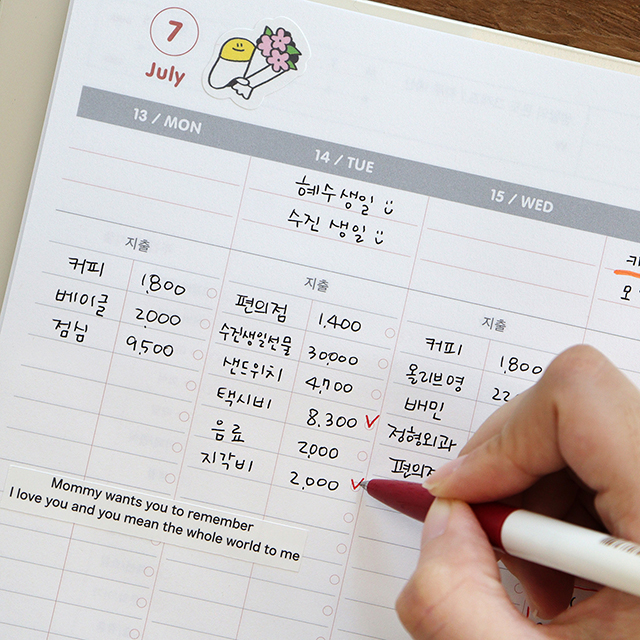 7
July
13 / MON
14 / TUE
15 / WED
혜수생일
수진 생일
지출
커피 1,800
베이글 2,000
점심 9,500
지출
편의점 1,400
수진생일선물 30,000
샌드위치 4,700
택시비 8,300
음료 2,000
지각비 2,000
지출
커피 1,800
올리브영
배민
정형외과
Mommy wants you to remember
I love you and you mean the whole world to me